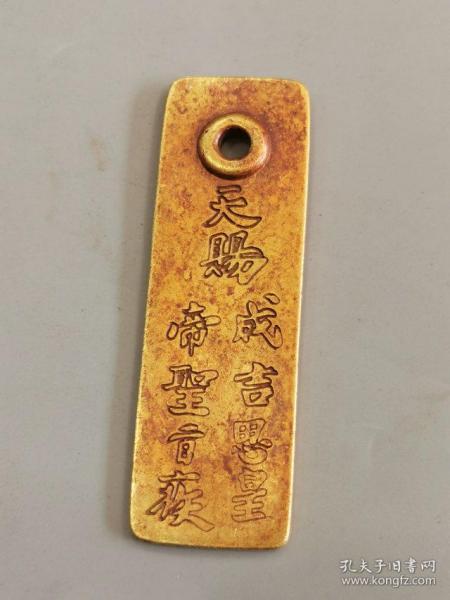 天賜
成吉思皇
帝聖旨疾
孔夫子旧书网
www.kongfz.com